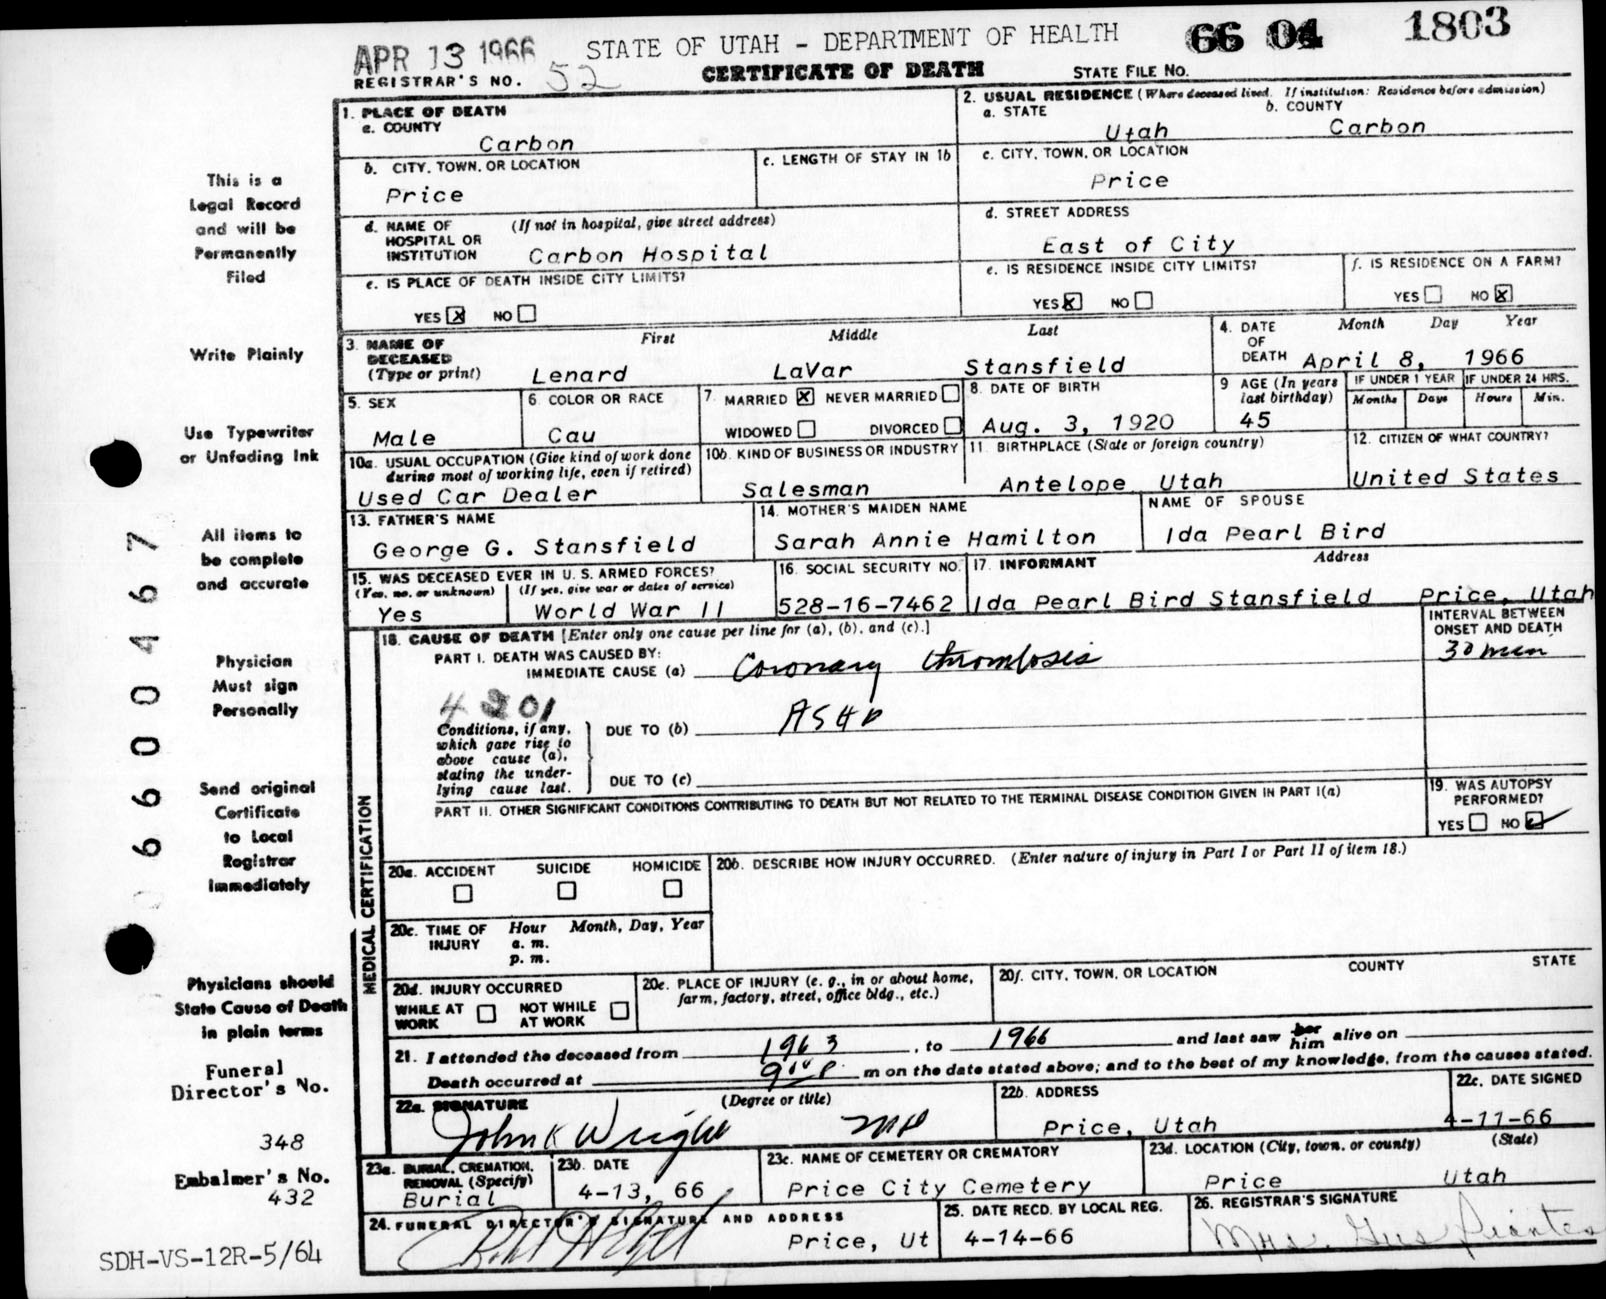 APR 13 1966 STATE OF UTAH - DEPARTMENT OF HEALTH 66 04 1803
REGISTRAR'S NO. 52 CERTIFICATE OF DEATH STATE FILE NO.
1. PLACE OF DEATH
a. COUNTY
Carbon
2. USUAL RESIDENCE (Where deceased lived. If institution: Residence before admission)
a. STATE b. COUNTY
Utah Carbon
b. CITY, TOWN, OR LOCATION
Price
c. LENGTH OF STAY IN 1b
c. CITY, TOWN, OR LOCATION
Price
d. NAME OF HOSPITAL OR INSTITUTION (If not in hospital, give street address)
Carbon Hospital
d. STREET ADDRESS
East of City
e. IS PLACE OF DEATH INSIDE CITY LIMITS?
YES X NO
e. IS RESIDENCE INSIDE CITY LIMITS?
YES X NO
f. IS RESIDENCE ON A FARM?
YES NO X
3. NAME OF DECEASED (Type or print)
First Middle Last
Lenard LaVar Stansfield
4. DATE OF DEATH Month Day Year
April 8, 1966
5. SEX
Male
6. COLOR OR RACE
Cau
7. MARRIED X NEVER MARRIED
WIDOWED DIVORCED
8. DATE OF BIRTH
Aug. 3, 1920
9 AGE (In years last birthday)
45
IF UNDER 1 YEAR
Months Days
IF UNDER 24 HRS.
Hours Min.
10a. USUAL OCCUPATION (Give kind of work done during most of working life, even if retired)
Used Car Dealer
10b. KIND OF BUSINESS OR INDUSTRY
Salesman
11. BIRTHPLACE (State or foreign country)
Antelope, Utah
12. CITIZEN OF WHAT COUNTRY?
United States
13. FATHER'S NAME
George G. Stansfield
14. MOTHER'S MAIDEN NAME
Sarah Annie Hamilton
NAME OF SPOUSE
Ida Pearl Bird
15. WAS DECEASED EVER IN U. S. ARMED FORCES?
(Yes, no, or unknown) (If yes, give war or dates of service)
Yes World War II
16. SOCIAL SECURITY NO.
528-16-7462
17. INFORMANT Address
Ida Pearl Bird Stansfield Price, Utah
18. CAUSE OF DEATH [Enter only one cause per line for (a), (b), and (c).]
INTERVAL BETWEEN ONSET AND DEATH
PART I. DEATH WAS CAUSED BY:
IMMEDIATE CAUSE (a) Coronary thrombosis 30 min
4201
Conditions, if any, which gave rise to above cause (a), stating the underlying cause last.
DUE TO (b) ASHD
DUE TO (c)
PART II. OTHER SIGNIFICANT CONDITIONS CONTRIBUTING TO DEATH BUT NOT RELATED TO THE TERMINAL DISEASE CONDITION GIVEN IN PART I(a)
19. WAS AUTOPSY PERFORMED?
YES NO ✓
MEDICAL CERTIFICATION
20a. ACCIDENT SUICIDE HOMICIDE
20b. DESCRIBE HOW INJURY OCCURRED. (Enter nature of injury in Part I or Part II of item 18.)
20c. TIME OF INJURY Hour Month, Day, Year
a. m.
p. m.
20d. INJURY OCCURRED
WHILE AT WORK NOT WHILE AT WORK
20e. PLACE OF INJURY (e. g., in or about home, farm, factory, street, office bldg., etc.)
20f. CITY, TOWN, OR LOCATION COUNTY STATE
21. I attended the deceased from 1963, to 1966 and last saw her him alive on
Death occurred at 9 P. m on the date stated above; and to the best of my knowledge, from the causes stated.
22a. SIGNATURE (Degree or title)
John K Wright MD
22b. ADDRESS
Price, Utah
22c. DATE SIGNED
4-11-66
23a. BURIAL, CREMATION, REMOVAL (Specify)
Burial
23b. DATE
4-13, 66
23c. NAME OF CEMETERY OR CREMATORY
Price City Cemetery
23d. LOCATION (City, town, or county) (State)
Price Utah
24. FUNERAL DIRECTOR'S SIGNATURE AND ADDRESS
Price, Ut
25. DATE RECD. BY LOCAL REG.
4-14-66
26. REGISTRAR'S SIGNATURE
Mrs. Gus
This is a
Legal Record
and will be
Permanently
Filed
Write Plainly
Use Typewriter
or Unfading Ink
All items to
be complete
and accurate
Physician
Must sign
Personally
Send original
Certificate
to Local
Registrar
immediately
Physicians should
State Cause of Death
in plain terms
Funeral
Director's No.
348
Embalmer's No.
432
SDH-VS-12R-5/64
6600467